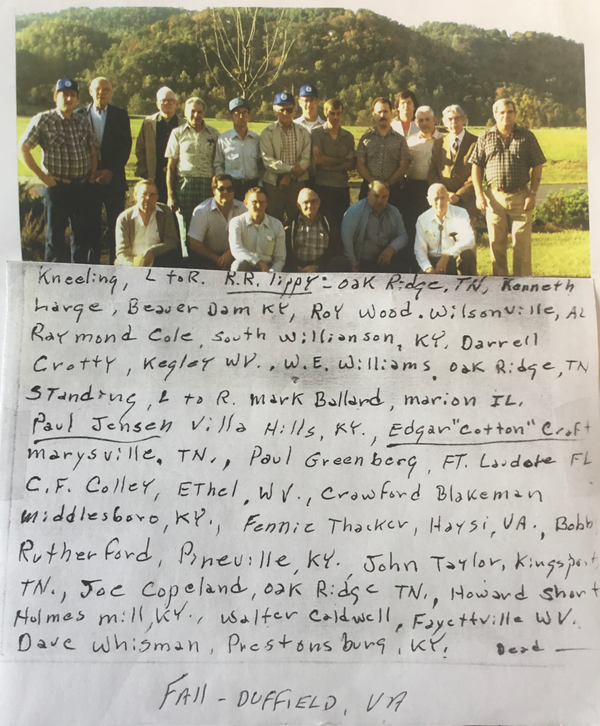 Kneeling, L to R. R.R. Tippy - Oak Ridge, TN, Kenneth
Large, Beaver Dam KY, Roy Wood. Wilsonville, AL
Raymond Cole, South Willianson, KY. Darrell
Crotty, Kegley WV., W.E. Williams, Oak Ridge, TN
Standing, L to R. Mark Ballard, Marion IL.
Paul Jensen Villa Hills, KY., Edgar "Cotton" Croft
Marysville, TN., Paul Greenberg, FT. Laudele FL
C.F. Colley, Ethel, WV., Crawford Blakeman
Middlesboro, KY., Fennie Thacker, Haysi, VA., Bobb
Rutherford, Pineville, KY. John Taylor, Kingsport
TN., Joe Copeland, Oak Ridge TN., Howard Short
Holmes Mill, KY., Walter Caldwell, Fayettville WV.
Dave Whisman, Prestonsburg, KY. Dead —
FAll - DUFFIELD, VA